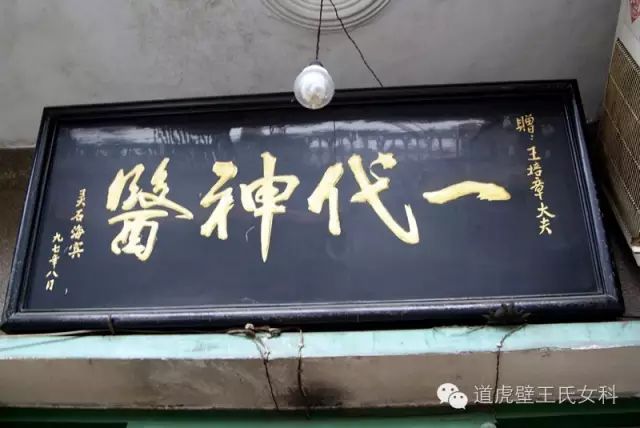 贈:王培章大夫
一代神醫
灵石海宾
九七年八月
道虎壁王氏女科